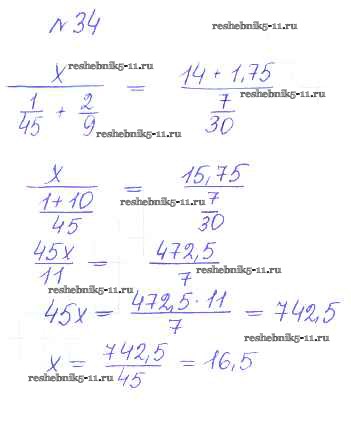 № 34
reshebnik5-11.ru
reshebnik5-11.ru
x / (1/45 + 2/9) = (14 + 1,75) / (7/30)
reshebnik5-11.ru
x / ((1+10)/45) = 15,75 / (7/30)
reshebnik5-11.ru
45x/11 = 472,5/7
reshebnik5-11.ru
reshebnik5-11.ru
45x = 472,5 · 11 / 7 = 742,5
reshebnik5-11.ru
x = 742,5/45 = 16,5
reshebnik5-11.ru